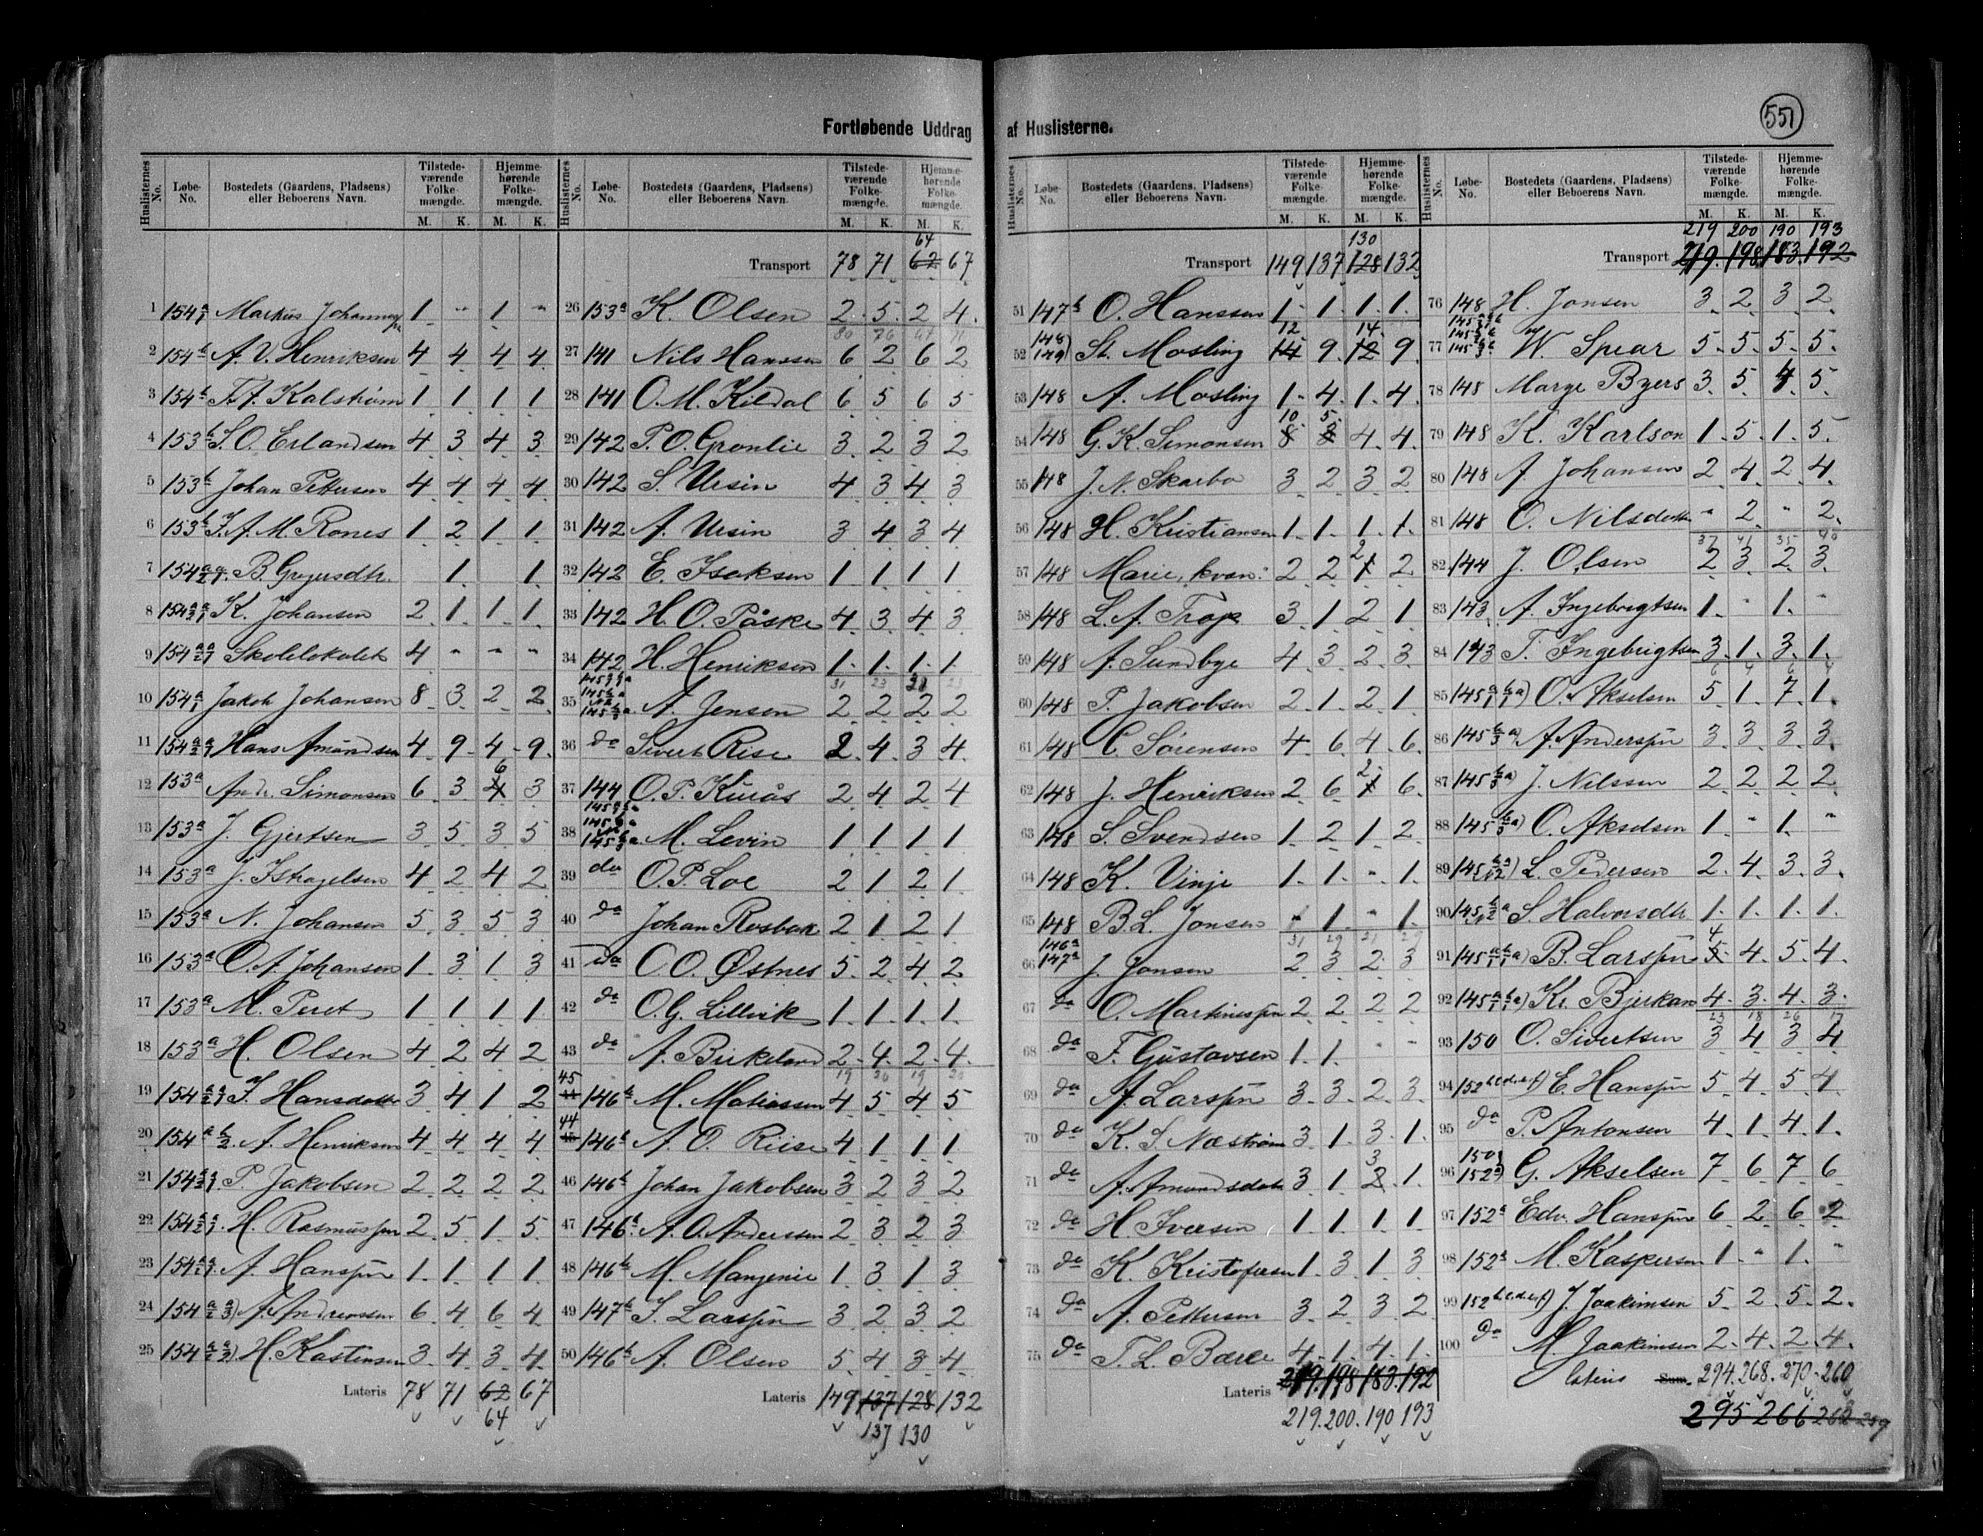 551
Fortløbende Uddrag af Huslisterne.
Huslisternes No. Løbe-No. Bostedets (Gaardens, Pladsens) eller Beboerens Navn. Tilstedeværende Folkemængde. M. K. Hjemmehørende Folkemængde. M. K.
1 154 Markus Johannes 1 " 1 "
2 154b A. V. Henriksen 4 4 4 4
3 154b Kalstrøm 1 1 1 1
4 153b S. O. Erlandsen 4 3 4 3
5 153b Johan Pettersen 4 4 4 4
6 153b J. A. M. Rones 1 2 1 1
7 154 B. Gregersdtr. 1 1
8 154 K. Johansen 2 1 1 1
9 154 Skolelokalet 4 " " "
10 154 Jakob Johansen 8 3 2 2
11 154 Hans Amundsen 4 9 4 9
12 153a Andr. Simonsen 6 3 6 3
13 153a J. Gjertsen 3 5 3 5
14 153a J. Istragelsen 4 2 4 2
15 153a N. Johansen 5 3 5 3
16 153a O. A. Johansen 1 3 1 3
17 153a M. Peret 1 1 1 1
18 153a H. Olsen 4 2 4 2
19 154 J. Hansdatter 3 4 1 2
20 154 A. Henriksen 4 4 4 4
21 154 P. Jakobsen 2 2 2 2
22 154 H. Rasmussen 2 5 1 5
23 154 A. Hanssen 1 1 1 1
24 154 A. Andreassen 6 4 6 4
25 154 H. Kastensen 3 4 3 4
Lateris 78 71 62 67
64
Huslisternes No. Løbe-No. Bostedets (Gaardens, Pladsens) eller Beboerens Navn. Tilstedeværende Folkemængde. M. K. Hjemmehørende Folkemængde. M. K.
64
Transport 78 71 62 67
26 153a K. Olsen 2 5 2 4
80 76
27 141 Nils Hanssen 6 2 6 2
28 141 O. M. Kildal 6 5 6 5
29 142 P. O. Grønlie 3 2 3 2
30 142 S. Ursin 4 3 4 3
31 142 A. Ursin 3 4 3 4
32 142 E. Isaksen 1 1 1 1
33 142 H. O. Påske 4 3 4 3
34 142 H. Henriksen 1 1 1 1
35 145 A. Jensen 2 2 2 2
36 do Sivert Rise 2 4 3 4
37 144 O. P. Kurås 2 4 2 4
38 145 M. Levin 1 1 1 1
39 do O. P. Loe 2 1 2 1
40 do Johan Rosbak 2 1 2 1
41 do O. O. Østnes 5 2 4 2
42 do O. G. Lillevik 1 1 1 1
43 do A. Birkeland 2 4 2 4
45 146b M. Matiassen 4 5 4 5
44 146b A. O. Riise 4 1 1 1
46 146b Johan Jakobsen 3 2 3 2
47 146b A. O. Anderssen 2 3 2 3
48 146b M. Manzenie 1 3 1 3
49 147b J. Larssen 3 2 3 2
50 146b A. Olsen 5 4 3 4
Lateris 149 137 128 132
137 130
Huslisternes No. Løbe-No. Bostedets (Gaardens, Pladsens) eller Beboerens Navn. Tilstedeværende Folkemængde. M. K. Hjemmehørende Folkemængde. M. K.
130
Transport 149 137 128 132
51 147b O. Hanssen 1 1 1 1
12 14
52 148 149) St. Mosling 14 9 12 9
53 148 A. Mosling 1 4 1 4
10 5
54 148 G. K. Simonsen 8 3 4 4
55 148 J. N. Skarbo 3 2 3 2
56 148 H. Kristiansen 1 1 1 1
57 148 Marie, kvæn: 2 2 2 2
58 148 L. A. Trap 3 1 2 1
59 148 A. Sundbye 4 3 2 3
60 148 P. Jakobsen 2 1 2 1
61 148 C. Sørensen 4 6 4 6
62 148 J. Henriksen 2 6 2 6
63 148 S. Svendsen 1 2 1 2
64 148 K. Vinje 1 1 " 1
65 148 B. L. Jonsen 1 " 1
66 146a 147a J. Jonsen 2 3 2 3
67 do O. Martinussen 2 2 2 2
68 do F. Gustavsen 1 1 " "
69 do A. Larssen 3 3 2 3
70 do K. S. Næstrøm 3 1 3 1
71 do A. Amundsdatter 3 1 3 1
72 do H. Iversen 1 1 1 1
73 do K. Kristofersen 1 3 1 3
74 do A. Pettersen 3 2 3 2
75 do T. L. Barer 4 1 4 1
Lateris 219 198 183 192
219. 200. 190 193
Huslisternes No. Løbe-No. Bostedets (Gaardens, Pladsens) eller Beboerens Navn. Tilstedeværende Folkemængde. M. K. Hjemmehørende Folkemængde. M. K.
219 200 190 193
Transport 219. 198 183. 192
76 148 H. Jonsen 3 2 3 2
77 145 W. Spear 5 5 5 5
78 148 Marge Byers 3 5 4 5
79 148 K. Karlson 1 5 1 5
80 148 A. Johansen 2 4 2 4
81 148 O. Nilsdatter " 2 " 2
37 41 35 40
82 144 J. Olsen 2 3 2 3
83 143 A. Ingebrigtsen 1 " 1 "
84 143 T. Ingebrigtsen 3 1 3 1
6 4 6 4
85 145 O. Akselsen 5 1 7 1
86 145 A. Anderssen 3 3 3 3
87 145 J. Nilssen 2 2 2 2
88 145 O. Akselsen 1 " 1 "
89 145 L. Pedersen 2 4 3 3
90 145 S. Halvorsdtr. 1 1 1 1
91 145 B. Larssen 4 4 5 4
92 145 Kr. Bjerkan 4 3 4 3
23 18 26 17
93 150 O. Sivertsen 3 4 3 4
94 152 E. Hanssen 5 4 5 4
95 do P. Antonsen 4 1 4 1
96 150 152 G. Akselsen 7 6 7 6
97 152a Edv. Hanssen 6 2 6 2
98 152a M. Kaspersen 1 " 1 "
99 152 J. Joakimsen 5 2 5 2
100 do M. Joakimsen 2 4 2 4
Lateris Sum. 294. 268. 270. 260
295 266 262 259